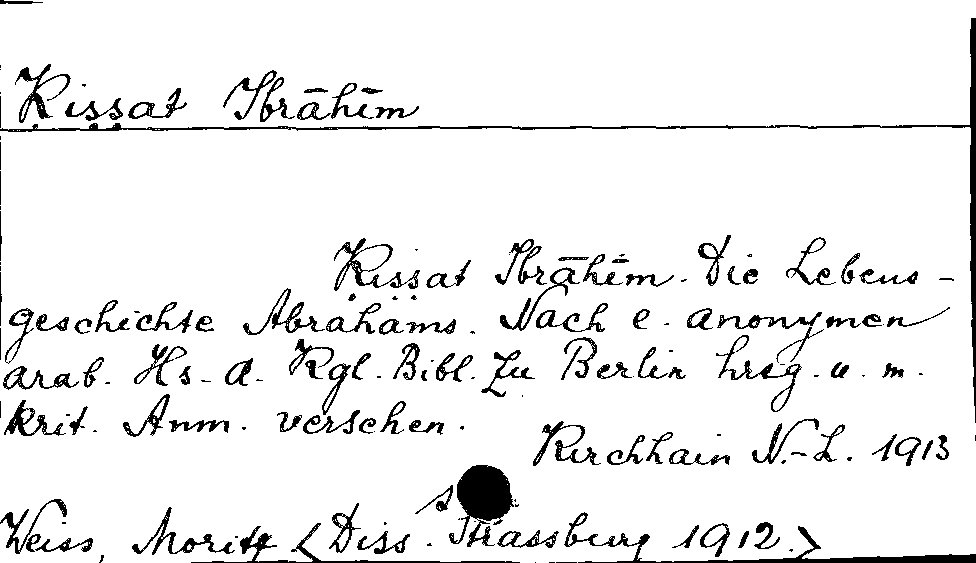 Ḳiṣṣat Ibrāhīm
Ḳiṣṣat Ibrāhīm. Die Lebens-
geschichte Abrahams. Nach e. anonymen
arab. Hs. d. Kgl. Bibl. zu Berlin hrsg. u. m.
krit. Anm. versehen.
Kirchhain N.-L. 1913
s
Weiss, Moritz <Diss. Strassburg 1912.>